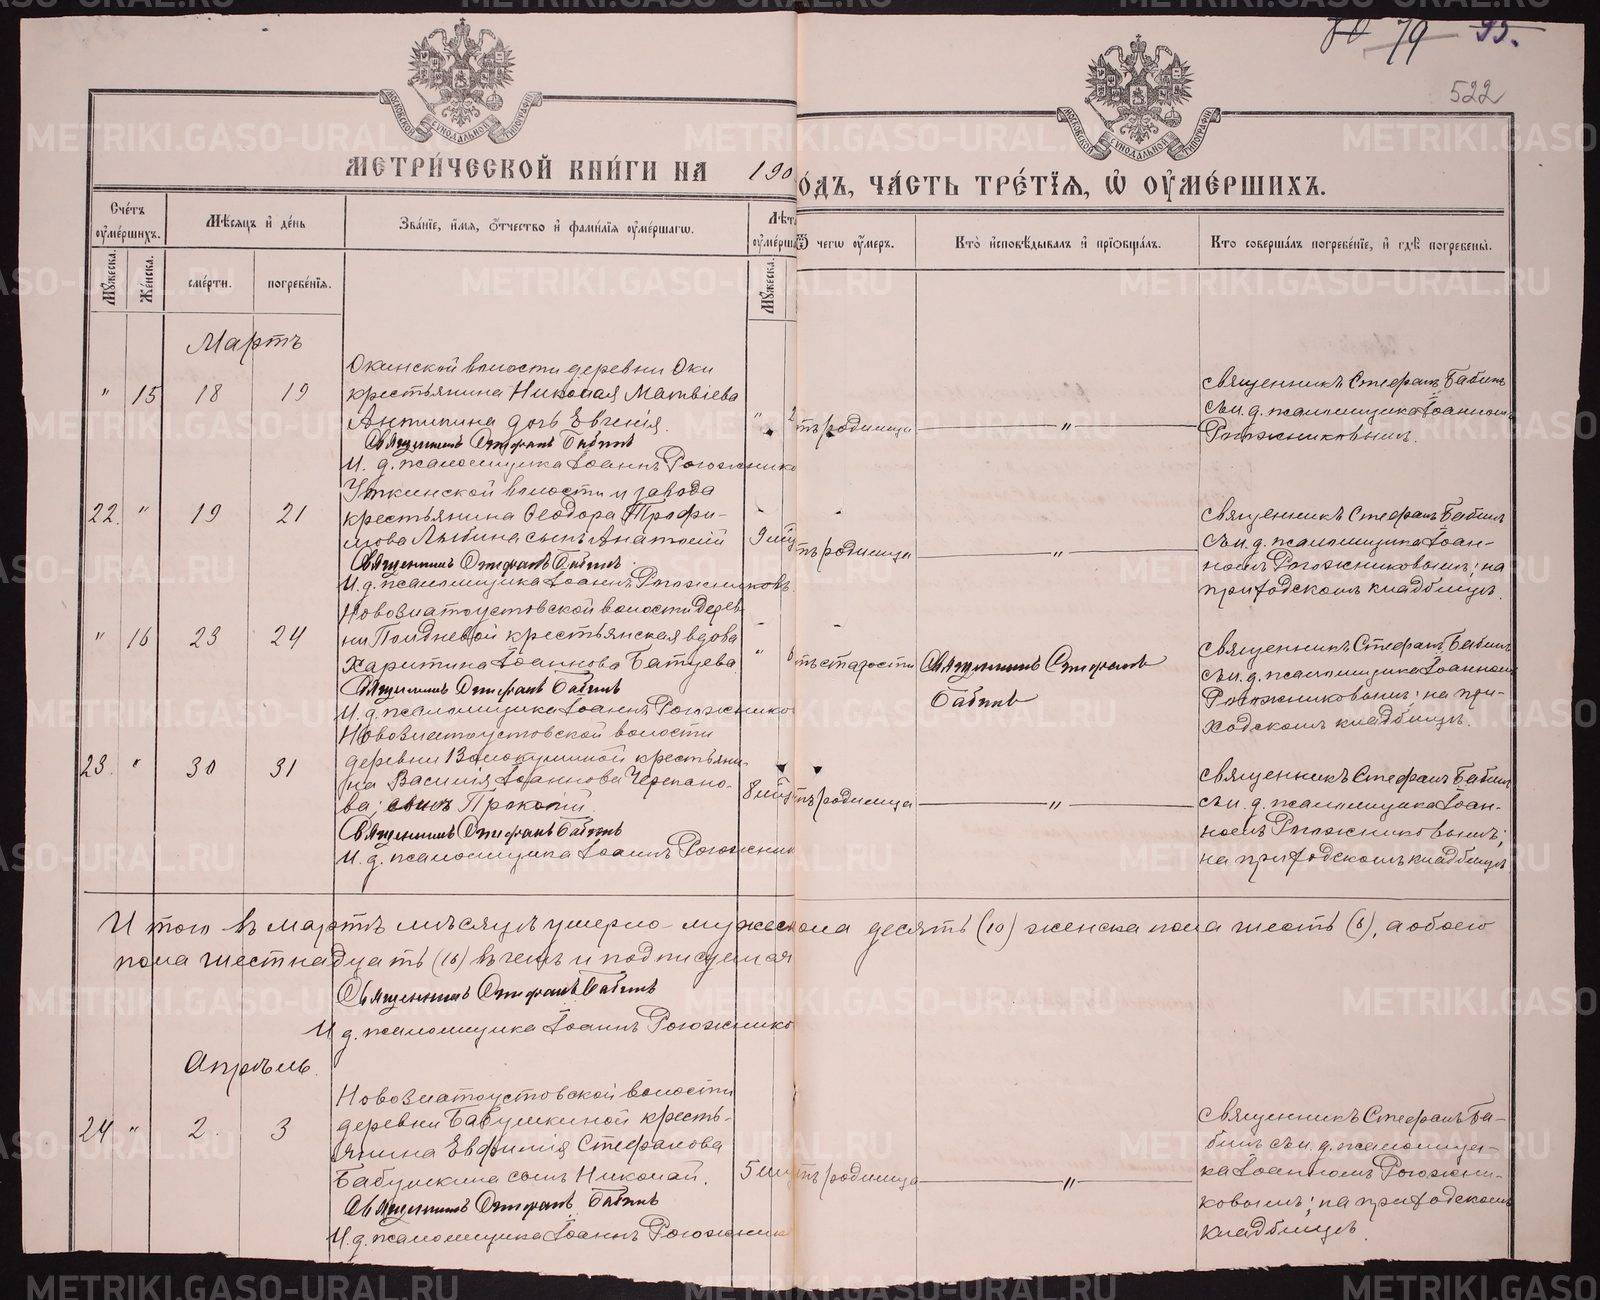 80 79 93.
522
МОСКОВСКОЙ СѴНОДАЛЬНОЙ ТИПОГРАФІИ
МОСКОВСКОЙ СѴНОДАЛЬНОЙ ТИПОГРАФІИ
МЕТРИ́ЧЕСКОЙ КНИ́ГИ НА 190
ОДЪ, ЧА́СТЬ ТРЕ́ТІЯ, Ѡ ОУМЕ́РШИХЪ.
Сче́тъ оуме́ршихъ.
Мѣ́сяцъ и де́нь
Зва́нїе, и́мя, о́тчество и фами́лія оуме́ршагѡ.
Лѣт
оуме́рша
Ѿ чегѡ оу́меръ.
Кто̀ исповѣ́дывалъ и прїѡбща́лъ.
Кто соверша́лъ погребе́нїе, и гдѣ̀ погребены̀.
Мꙋ́жеска.
Же́нска.
сме́рти.
погребе́нїя.
Мꙋ́жеска.
Мартъ
" 15 18 19
Окинской волости деревни Оки
крестьянина Николая Матвіева
Антипина дочь Евгенія.
Священникъ Стефанъ Бабинъ
И. д. псаломщика Іоаннъ Рогожнико
" 2
тъ родимца
"
Священникъ Стефанъ Бабинъ
съ и. д. псаломщика Іоанномъ
Рогожниковымъ.
22. " 19 21
Уткинской волости и завода
крестьянина Ѳеодора Трофи-
мова Лябина сынъ Анатолій
Священникъ Стефанъ Бабинъ.
И. д. псаломщика Іоаннъ Рогожниковъ.
9 мѣ
тъ родимца
"
Священникъ Стефанъ Бабинъ
съ и. д. псаломщика Іоан-
номъ Рогожниковымъ; на
приходскомъ кладбищѣ.
" 16 23 24
Новозлатоустовской волости дерев
ни Полдневой крестьянская вдова
Харитина Іоаннова Батуева
Священникъ Стефанъ Бабинъ
И. д. псаломщика Іоаннъ Рогожнико
"
тъ старости
Священникъ Стефанъ
Бабинъ
Священникъ Стефанъ Бабинъ
съ и. д. псаломщика Іоанномъ
Рогожниковымъ; на при-
ходскомъ кладбищѣ.
23. " 30 31
Новозлатоустовской волости
деревни Волокушиной крестьяни-
на Василія Іоаннова Черепано-
ва, сынъ Прокопій.
Священникъ Стефанъ Бабинъ
И. д. псаломщика Іоаннъ Рогожник
8 мѣ
тъ родимца
"
Священникъ Стефанъ Бабинъ
съ и. д. псаломщика Іоан-
номъ Рогожниковымъ;
на приходскомъ кладбищѣ
И того въ мартѣ мѣсяцѣ умерло мужеск пола десять (10) женска пола шесть (6), а обоего
пола шестнадцать (16) въ чемъ и подписуемся
Священникъ Стефанъ Бабинъ
И. д. псаломщика Іоаннъ Рогожнико
Апрѣль.
24 " 2. 3
Новозлатоустовской волости
деревни Бабушкиной кресть-
янина Евфимія Стефанова
Бабушкина сынъ Николай.
Священникъ Стефанъ Бабинъ
И. д. псаломщика Іоаннъ Рогожник
5 мѣ
тъ родимца
"
Священникъ Стефанъ Ба-
бинъ съ и. д. псаломщи-
ка Іоанномъ Рогожни-
ковымъ; на приходскомъ
кладбищѣ
METRIKI.GASO-URAL.RU